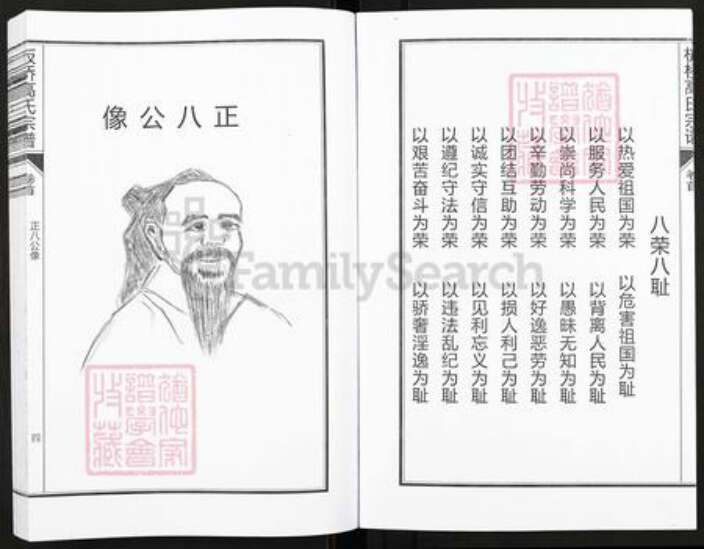 八荣八耻
以热爱祖国为荣 以危害祖国为耻
以服务人民为荣 以背离人民为耻
以崇尚科学为荣 以愚昧无知为耻
以辛勤劳动为荣 以好逸恶劳为耻
以团结互助为荣 以损人利己为耻
以诚实守信为荣 以见利忘义为耻
以遵纪守法为荣 以违法乱纪为耻
以艰苦奋斗为荣 以骄奢淫逸为耻
正八公像
高氏宗谱
卷首
正八公像
四
高氏宗谱
卷首
FamilySearch